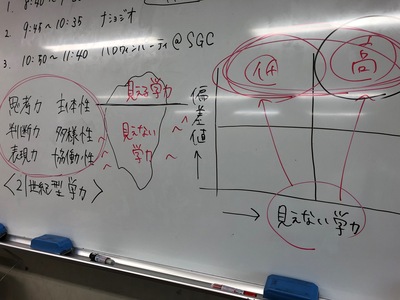 2. 9:45〜10:35 ナショジオ
3. 10:50〜11:40 ハロウィンパーティ@SGC
思考力 主体性
判断力 多様性
表現力 協働性
〈21世紀型学力〉
見える学力
見えない
学力
偏差値
低
高
見えない学力